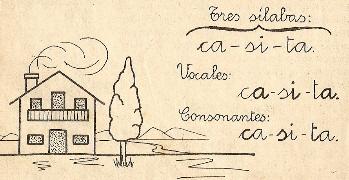 Tres sílabas:
ca-si-ta.
Vocales:
ca-si-ta.
Consonantes:
ca-si-ta.